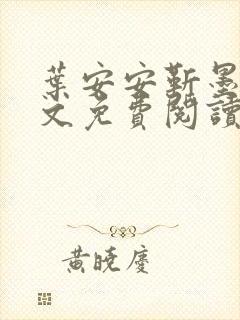 葉安安靳墨
文免費閱讀
黃曉慶